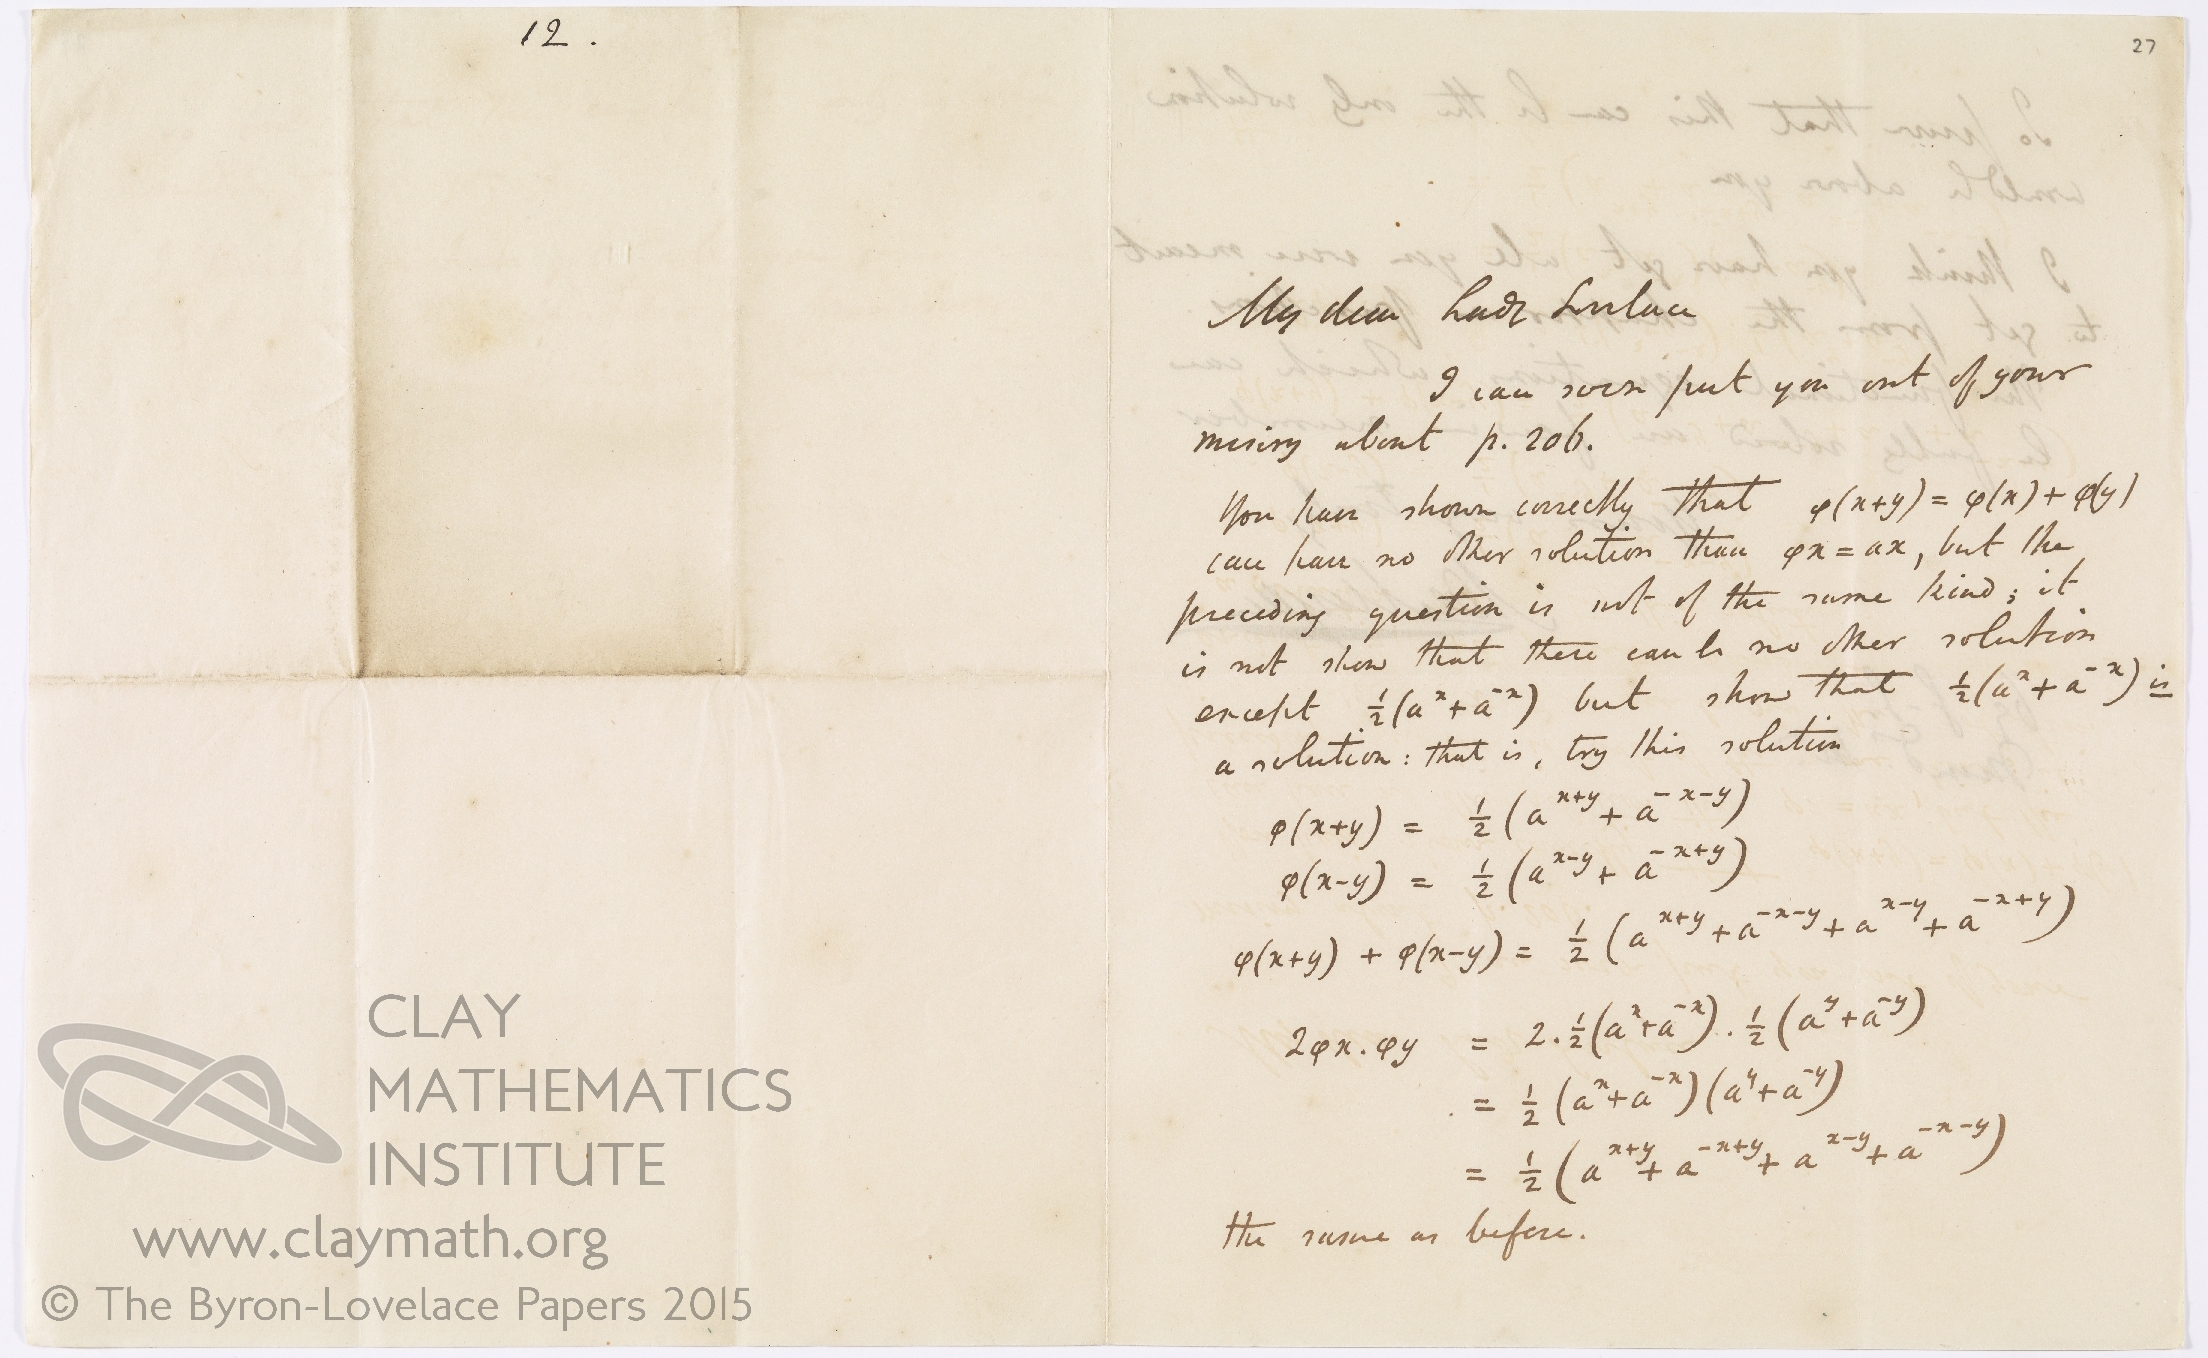 12.
27
My dear Lady Lovelace
I can soon put you out of your
misery about p. 206.
You have shown correctly that φ(x+y) = φ(x) + φ(y)
can have no other solution than φx = ax, but the
preceding question is not of the same kind; it
is not show that there can be no other solution
except ½(aˣ+a⁻ˣ) but show that ½(aˣ+a⁻ˣ) is
a solution: that is, try this solution
φ(x+y) = ½(aˣ⁺ʸ + a⁻ˣ⁻ʸ)
φ(x-y) = ½(aˣ⁻ʸ + a⁻ˣ⁺ʸ)
φ(x+y) + φ(x-y) = ½(aˣ⁺ʸ + a⁻ˣ⁻ʸ + aˣ⁻ʸ + a⁻ˣ⁺ʸ)
2φx.φy = 2.½(aˣ+a⁻ˣ).½(aʸ+a⁻ʸ)
= ½(aˣ+a⁻ˣ)(aʸ+a⁻ʸ)
= ½(aˣ⁺ʸ + a⁻ˣ⁺ʸ + aˣ⁻ʸ + a⁻ˣ⁻ʸ)
the same as before.
CLAY
MATHEMATICS
INSTITUTE
www.claymath.org
© The Byron-Lovelace Papers 2015